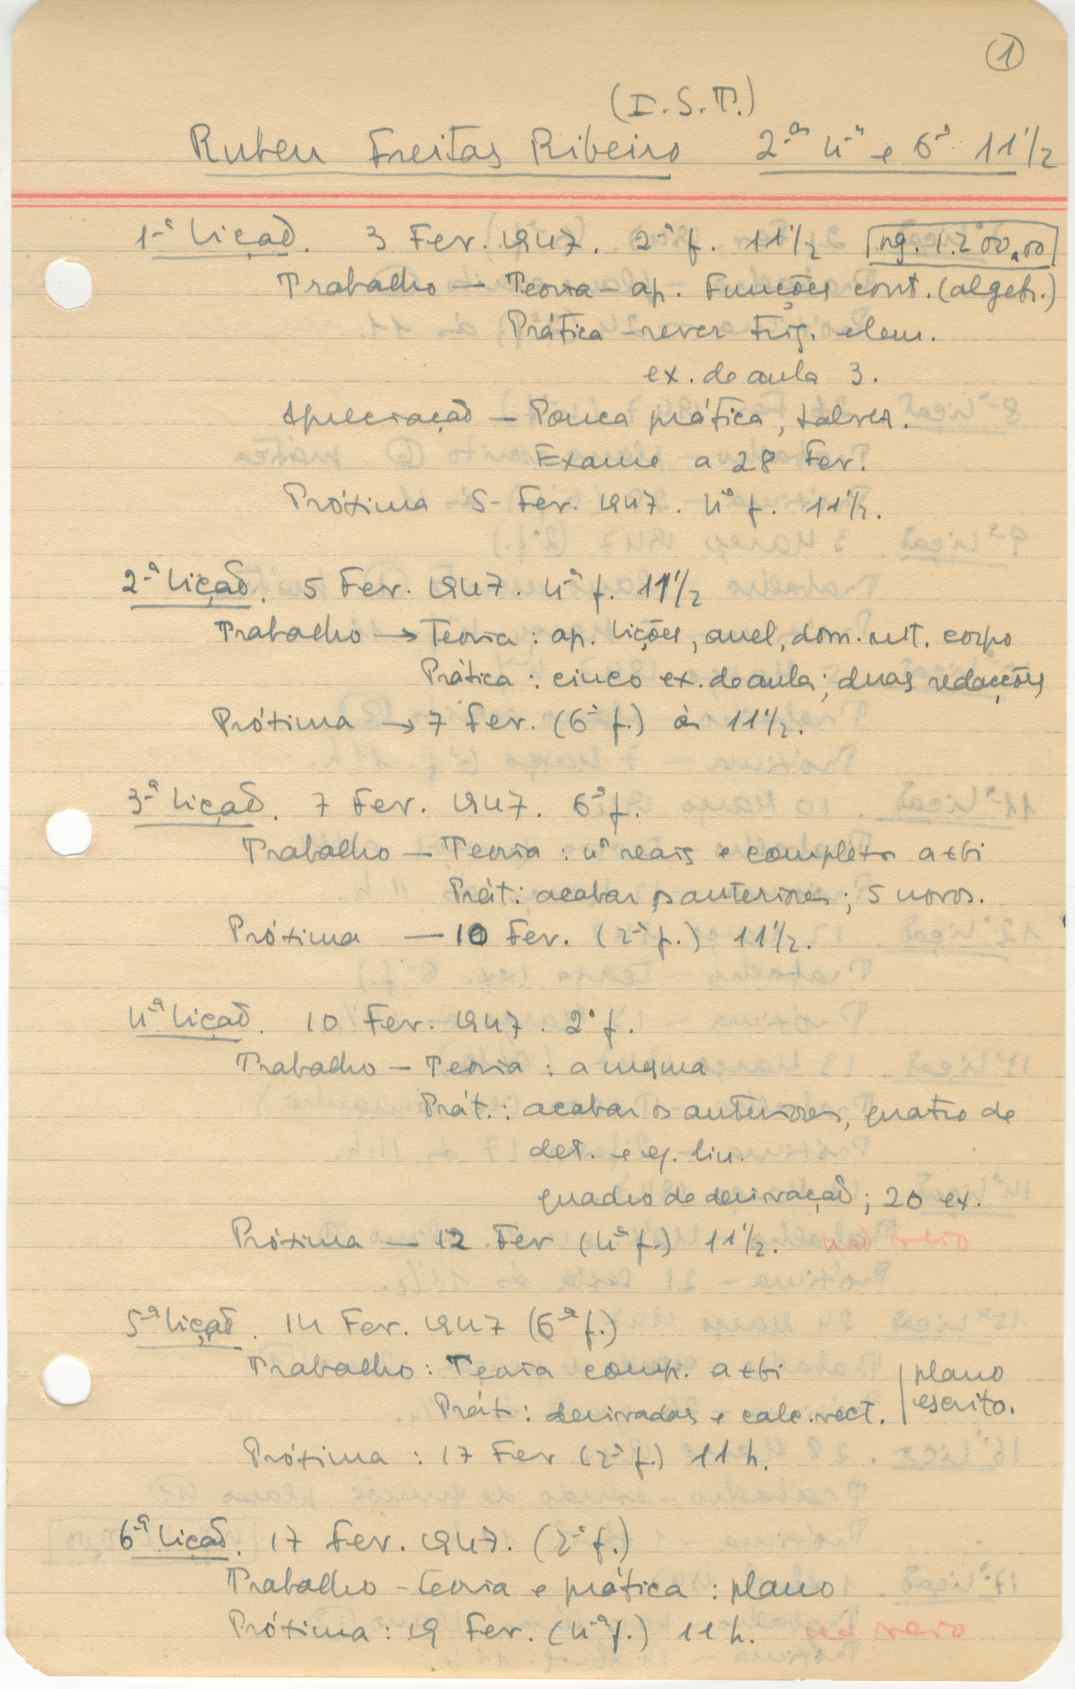 1
(I.S.T.)
Ruben Freitas Ribeiro 2.as 4.as e 6.as 11 1/2
1.ª Lição. 3 Fev. 1947. 2.ª f. 11 1/2 pg. 1.200,00
Trabalho — Teoria — ap. Funções cont. (algebr.)
Prática — rever Trig. elem.
ex. de aula 3.
Apreciação — Pouca prática, talvez.
Exame a 28 Fev.
Próxima 5 - Fev. 1947. 4ª f. 11 1/2.
2.ª Lição. 5 Fev. 1947. 4.ª f. 11 1/2
Trabalho → Teoria : ap. Lições, anel, dom. int. corpo
Prática : cinco ex. de aula; duas redacções
Próxima → 7 Fev. (6ª f.) às 11 1/2.
3.ª Lição. 7 Fev. 1947. 6ª f.
Trabalho — Teoria : nos reais e complexos a+bi
Prát: acabar os anteriores; 5 novos.
Próxima — 10 Fev. (2ª f.) 11 1/2.
4ª Lição. 10 Fev. 1947. 2ª f.
Trabalho — Teoria : a mesma
Prát.: acabar os anteriores, quatro de
det. e eq. lin.
quadro de derivação; 20 ex.
Próxima — 12 Fev (4ª f.) 11 1/2. não veio
5ª Lição. 14 Fev. 1947 (6ª f.)
Trabalho: Teoria comp. a+bi
Prát: derivadas e calc. vect. | plano escrito.
Próxima : 17 Fev (2ª f.) 11 h.
6ª Lição. 17 Fev. 1947. (2ª f.)
Trabalho - teoria e prática : plano
Próxima : 19 Fev. (4ª f.) 11 h. não veio